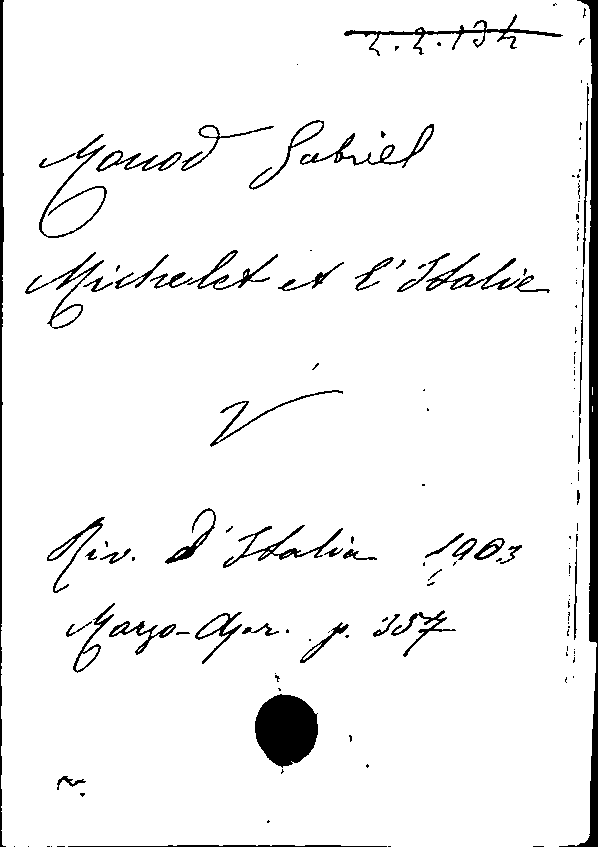 2.2.134
Monod Gabriel
Michelet et l'Italie
V
Riv. d'Italia 1903
Marzo-Apr. p. 357